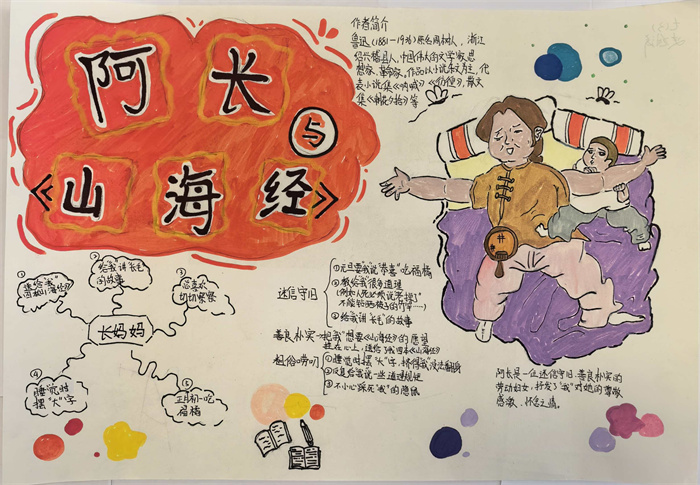 阿长
与
《山海经》
作者简介
鲁迅(1881-1936)原名周树人，浙江
绍兴县人，中国伟大的文学家，思
想家，革命家，作品以小说杂文为主，代
表小说集《呐喊》《彷徨》，散文
集《朝花夕拾》等
长妈妈
①
送给"我"
②
给我讲长毛
的故事
③
总喜欢
切切察察
④
睡觉时
摆"大"字
⑤
正月初一吃
福橘
迷信守旧
①元旦要"我"说"恭喜"吃福橘
②教给我很多道理
③给我讲"长毛"的故事
善良朴实→把"我"想要《山海经》的愿望
粗俗唠叨
①睡觉时摆"大"字，挤得我没法翻身
③不小心踩死"我"的隐鼠
阿长是一位迷信守旧、善良朴实的
劳动妇女，抒发了"我"对她的尊敬
感激，怀念之情。